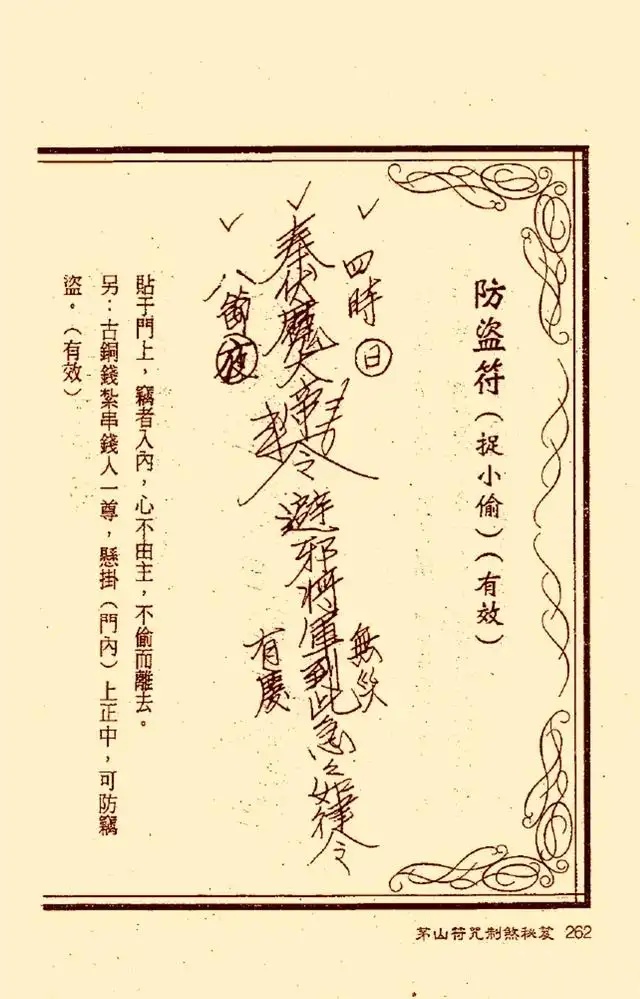 防盜符(捉小偷)(有效)
四時日
無災
奉伏魔大帝
令
避邪將軍到此急々如律令
八節
有慶
貼于門上，竊者入內，心不由主，不偷而離去。
另：古銅錢紮串錢人一尊，懸掛(門內)上正中，可防竊
盜。(有效)
茅山符咒制煞秘笈 262